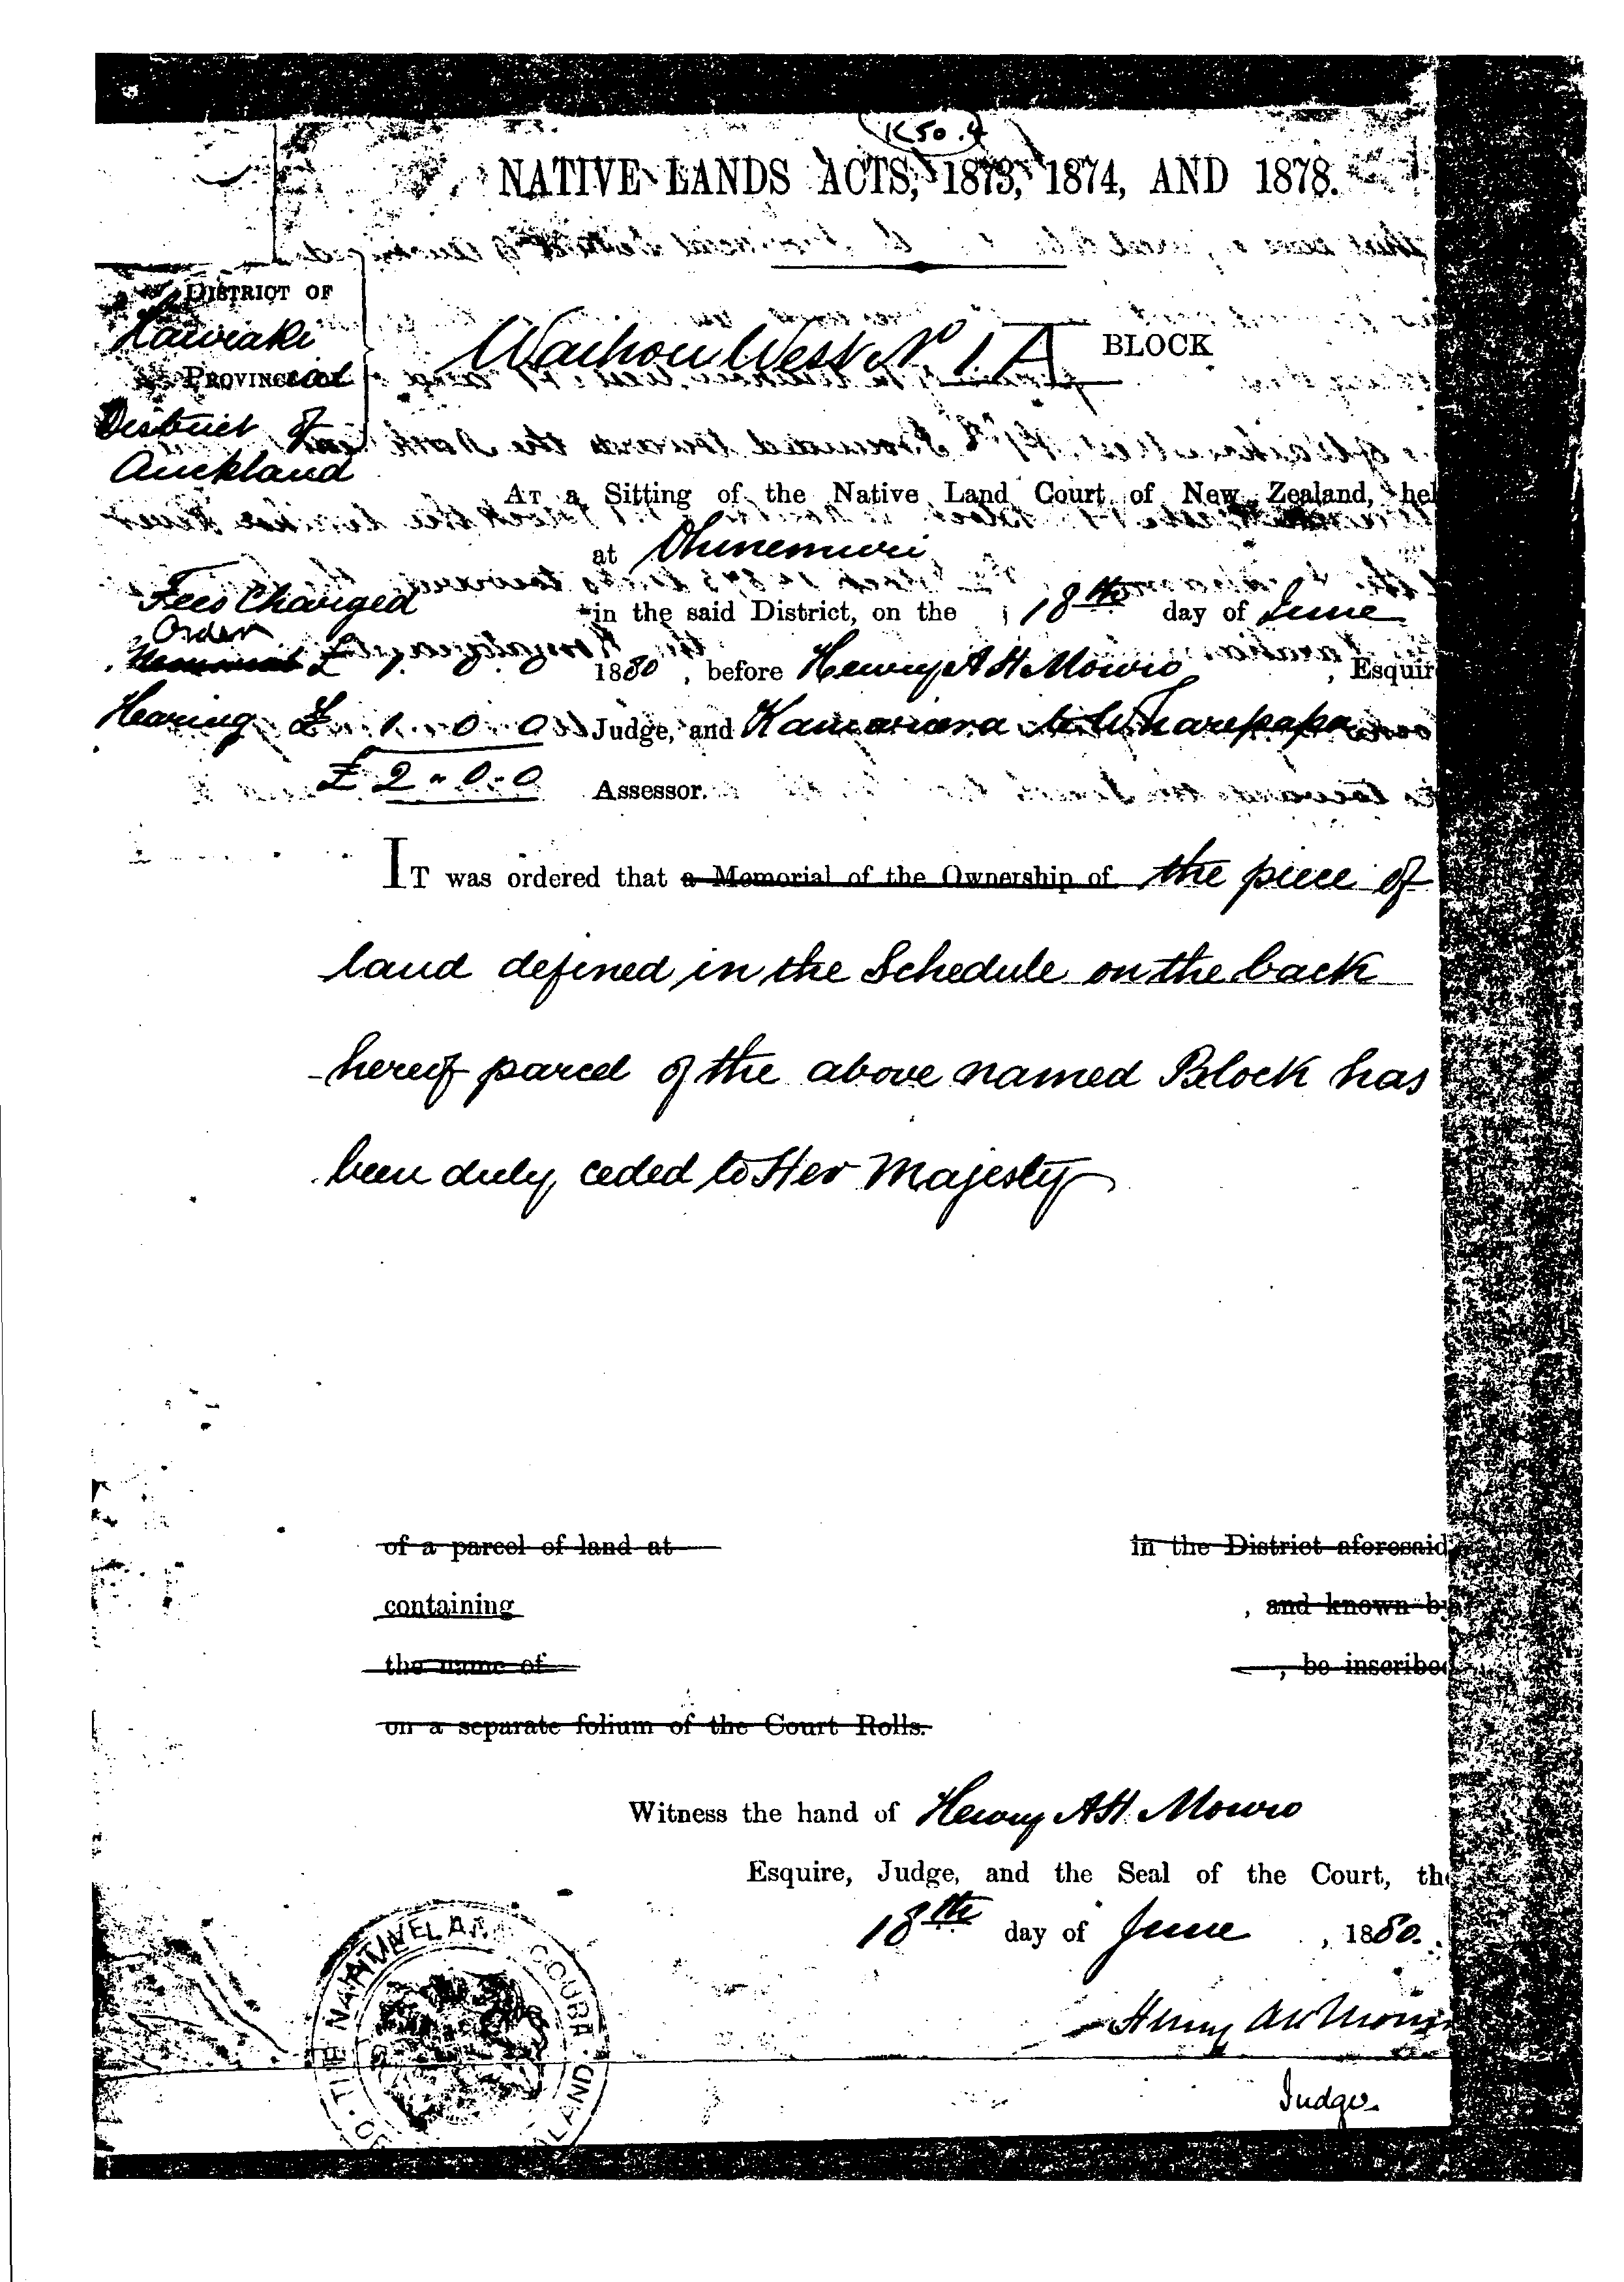 K50.4
NATIVE LANDS ACTS, 1873, 1874, AND 1878.
DISTRICT OF
Hauraki
PROVINCEcial
District of
Auckland
Waihou West No 1.A BLOCK
AT a Sitting of the Native Land Court of New Zealand, hel
at Ohinemuri
in the said District, on the 18th day of June
1880, before Henry A H Monro, Esquir
Judge, and Kamariera te Wharepapa
Assessor.
Fees Charged
Order
Memorial £ 1.
Hearing £ 1 . 0 . 0
£ 2 " 0 - 0
IT was ordered that a Memorial of the Ownership of the piece of
land defined in the Schedule on the back
hereof parcel of the above named Block has
been duly ceded to Her Majesty
of a parcel of land at in the District aforesaid
containing , and known by
the name of , be inscribed
on a separate folium of the Court Rolls.
Witness the hand of Henry A H. Monro
Esquire, Judge, and the Seal of the Court, the
18th day of June, 1880.
Henry A H Monro
Judge.
THE NATIVE LAND COURT